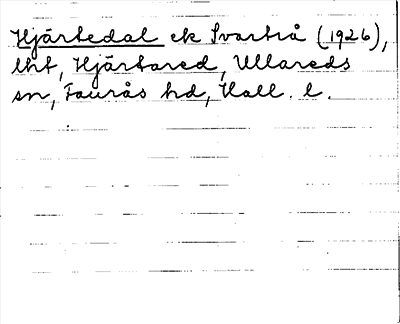 Hjärtedal ek Svartrå (1926),
lht, Hjärtared, Ullareds
sn, Faurås hd, Hall. l.